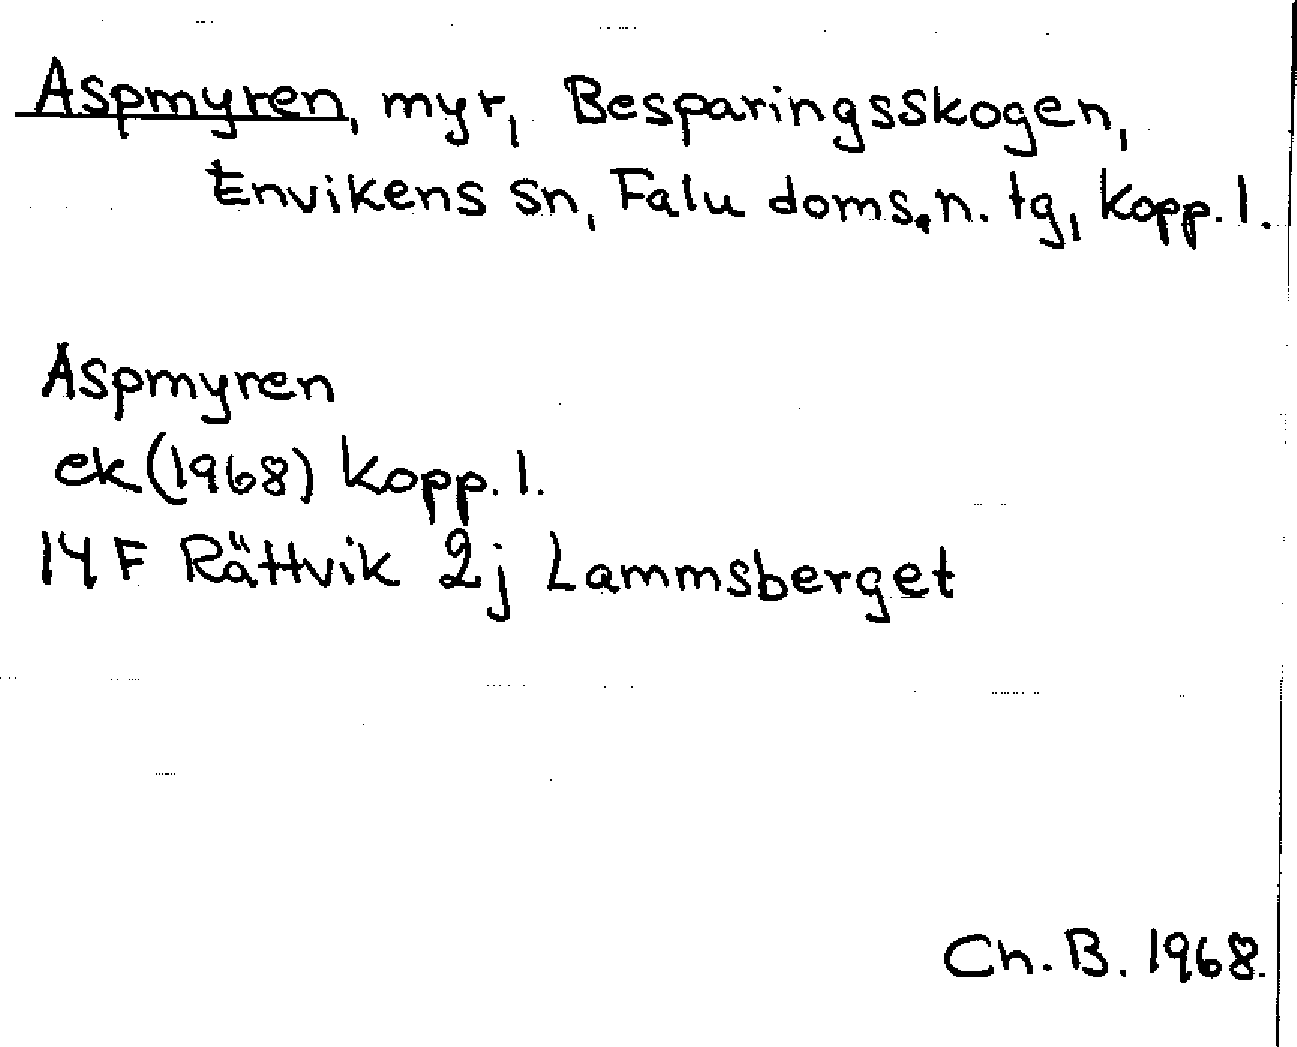 Aspmyren, myr, Besparingsskogen,
Envikens sn, Falu doms.n. tg, Kopp. l.
Aspmyren
ek (1968) Kopp. l.
14 F Rättvik 2j Lammsberget
Ch. B. 1968.